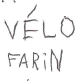 VÉLO
FARIN